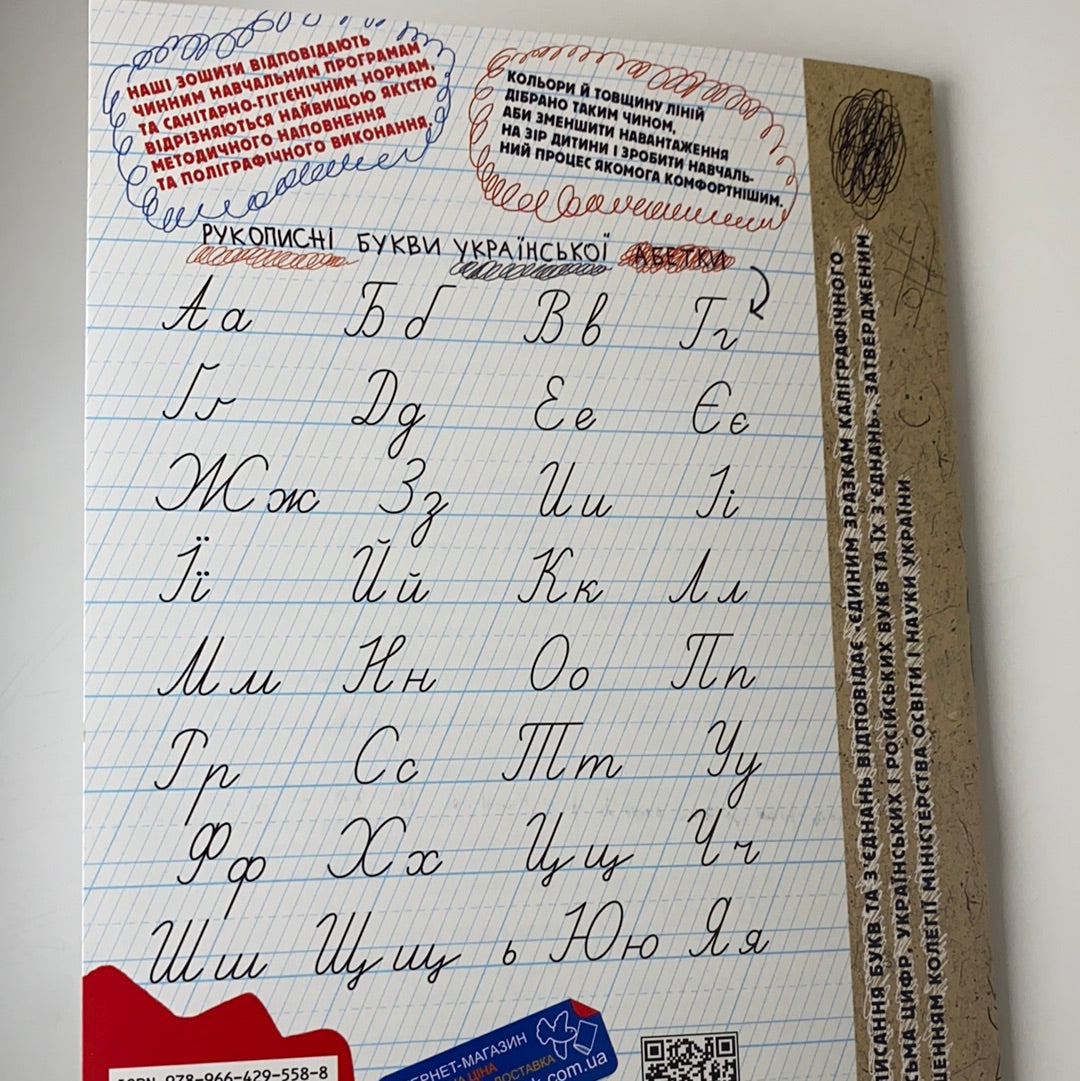 НАШІ ЗОШИТИ ВІДПОВІДАЮТЬ
ЧИННИМ НАВЧАЛЬНИМ ПРОГРАМАМ
ТА САНІТАРНО-ГІГІЄНІЧНИМ НОРМАМ,
ВІДРІЗНЯЮТЬСЯ НАЙВИЩОЮ ЯКІСТЮ
МЕТОДИЧНОГО НАПОВНЕННЯ
ТА ПОЛІГРАФІЧНОГО ВИКОНАННЯ.
КОЛЬОРИ Й ТОВЩИНУ ЛІНІЙ
ДІБРАНО ТАКИМ ЧИНОМ,
АБИ ЗМЕНШИТИ НАВАНТАЖЕННЯ
НА ЗІР ДИТИНИ І ЗРОБИТИ НАВЧАЛЬ-
НИЙ ПРОЦЕС ЯКОМОГА КОМФОРТНІШИМ.
РУКОПИСНІ БУКВИ УКРАЇНСЬКОЇ АБЕТКИ
Аа Бб Вв Гг
Ґґ Дд Ее Єє
Жж Зз Ии Іі
Її Йй Кк Лл
Мм Нн Оо Пп
Рр Сс Тт Уу
Фф Хх Цц Чч
Шш Щщ ь Юю Яя
БУКВ ТА З'ЄДНАНЬ ВІДПОВІДАЄ «ЄДИНИМ ЗРАЗКАМ КАЛІГРАФІЧНОГО
ЦИФР, УКРАЇНСЬКИХ І РОСІЙСЬКИХ БУКВ ТА ЇХ З'ЄДНАНЬ», ЗАТВЕРДЖЕНИМ
КОЛЕГІЇ МІНІСТЕРСТВА ОСВІТИ І НАУКИ УКРАЇНИ
ISBN 978-966-429-558-8
ЕРНЕТ-МАГАЗИН
ЦІНА
ДОСТАВКА
k.com.ua